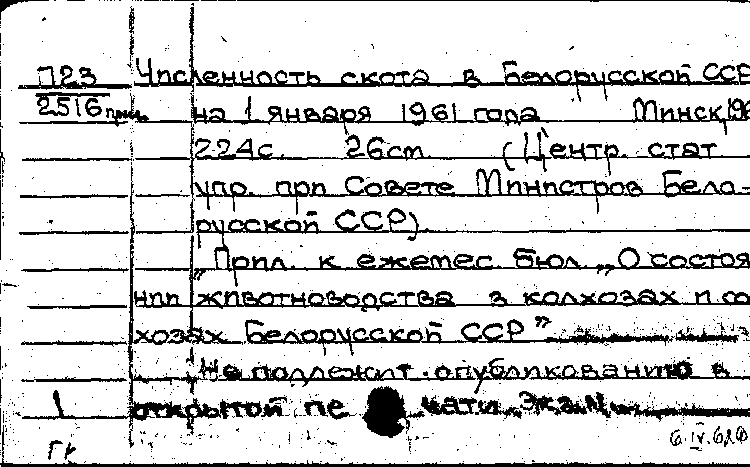 П23 Численность скота в Белорусской ССР
2516 прил. на 1 января 1961 года Минск, 196
224с. 26см. (Центр. стат
упр. при Совете Министров Бело-
русской ССР).
"Прил. к ежемес. бюл. „О состоя
нии животноводства в колхозах и со
хозах Белорусской ССР"
Не подлежит опубликованию в
1 открытой пе чати. Экз. №
Гк